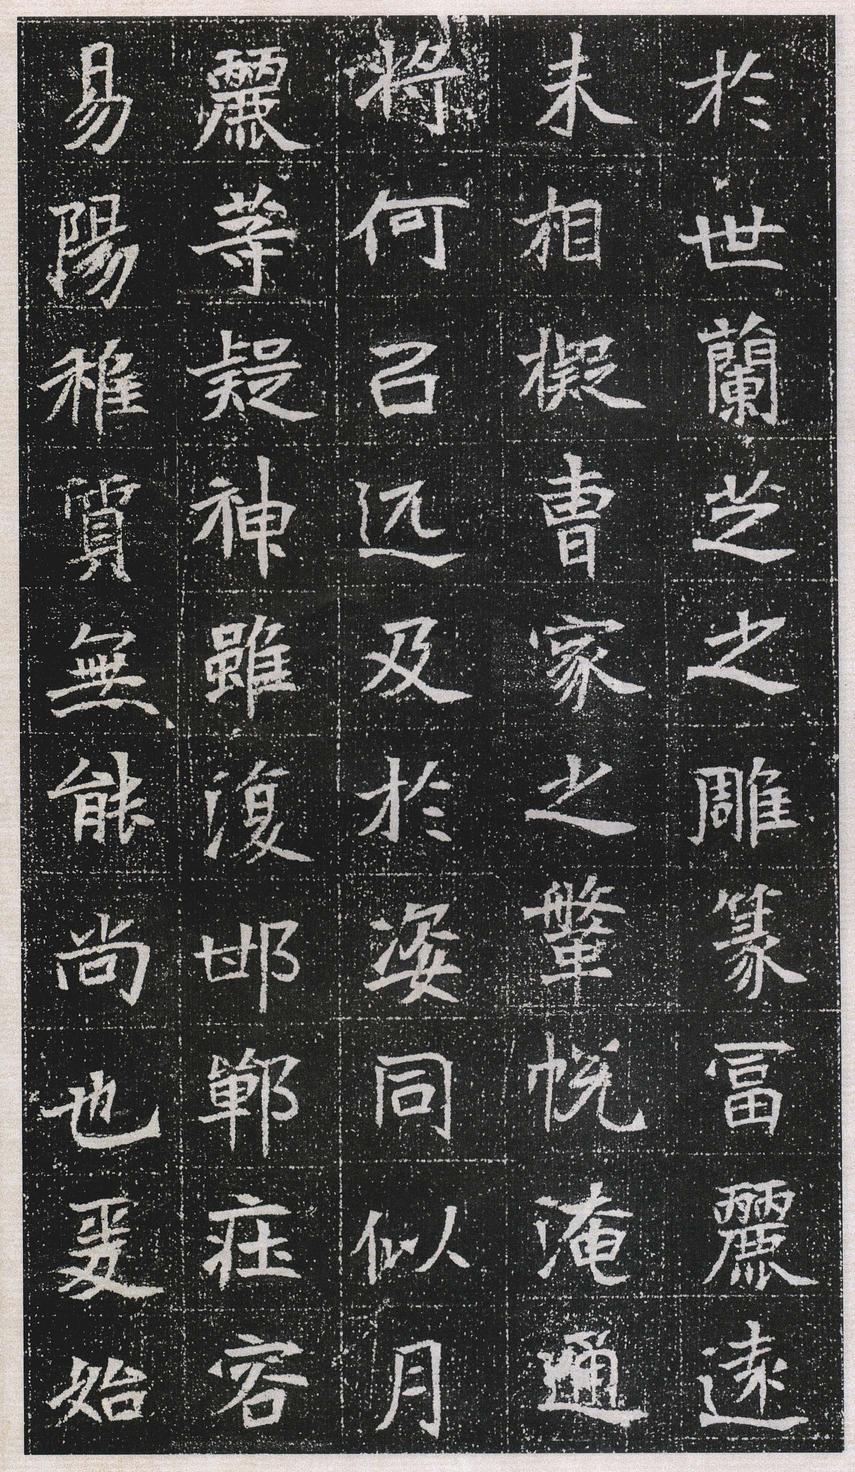 於世蘭芝之雕篆冨麗遠
未相擬曹家之鞶帨淹通
將何以远及於姿同似月
麗等疑神雖復邯鄲莊容
易陽稚質無能尚也爰始